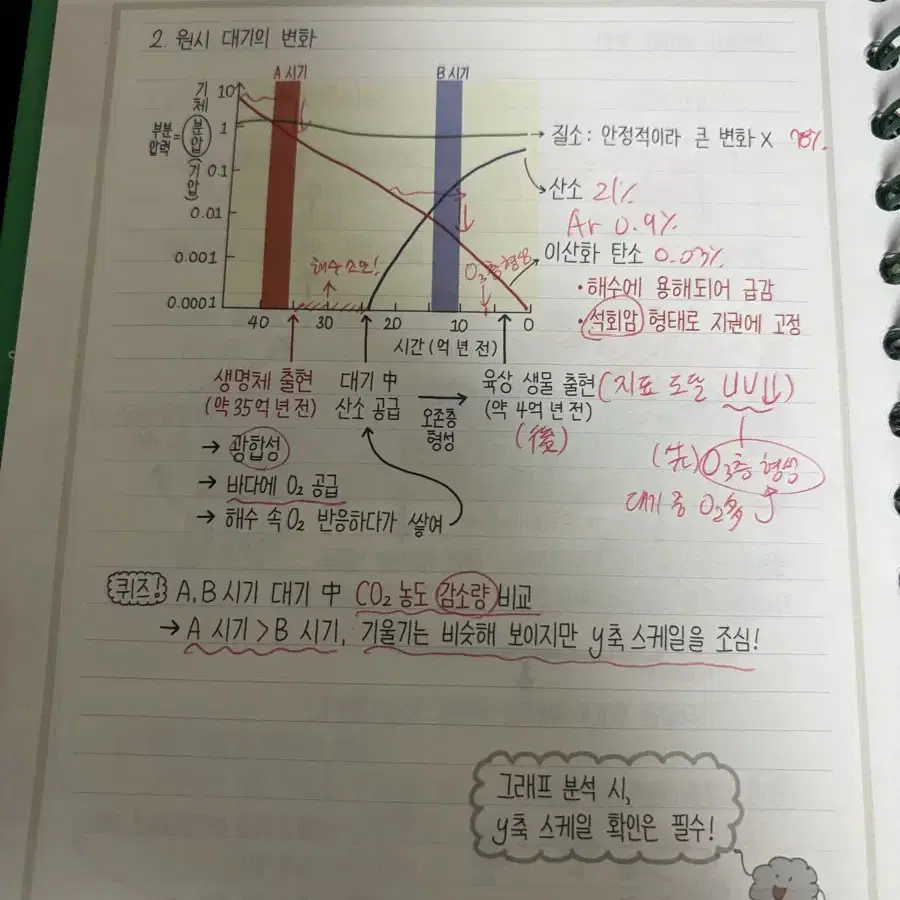 2. 원시 대기의 변화
A 시기
B 시기
기체 분압 (기압)
부분 압력 =
10
1
0.1
0.01
0.001
0.0001
40 30 20 10 0
시간 (억 년 전)
해수 소모!
O₃층 형성
질소: 안정적이라 큰 변화 X 78%
산소 21%
Ar 0.9%
이산화 탄소 0.03%
· 해수에 용해되어 급감
· 석회암 형태로 지권에 고정
생명체 출현
(약 35억 년 전)
→ 광합성
→ 바다에 O₂ 공급
→ 해수 속 O₂ 반응하다가 쌓여
대기 中
산소 공급
오존층
형성
육상 생물 출현 (지표 도달 UV↓)
(약 4억 년 전)
(後)
(先) O₃층 형성
대기 중 O₂
퀴즈! A, B 시기 대기 中 CO₂ 농도 감소량 비교
→ A 시기 > B 시기, 기울기는 비슷해 보이지만 y축 스케일을 조심!
그래프 분석 시,
y축 스케일 확인은 필수!